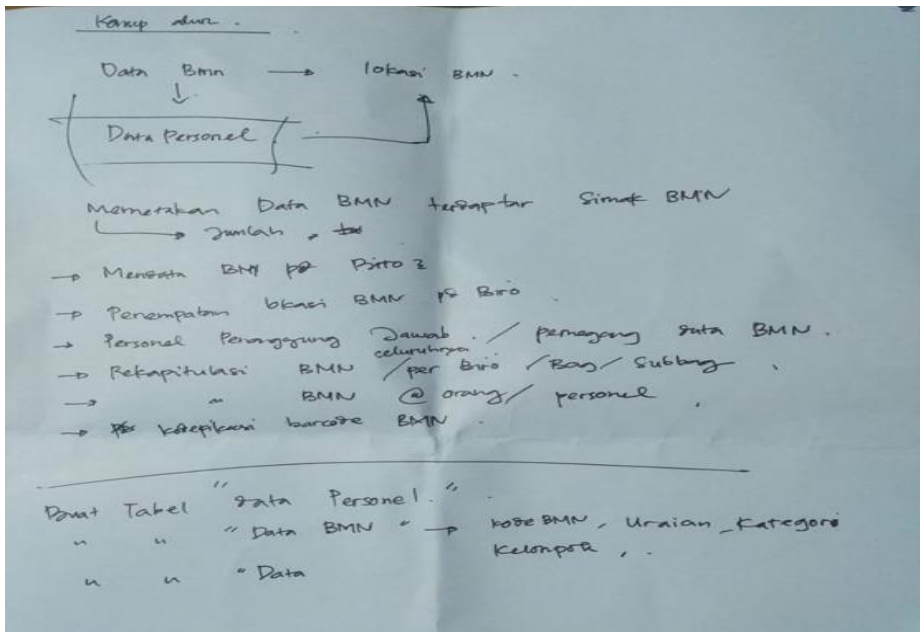 Data Bmn → lokasi BMN.
↓
Data Personel
Memetakan Data BMN terdaptar Simak BMN
→ Jumlah,
→ Mendata BMN pd Biro2
→ Penempatan lokasi BMN pd Biro.
→ Personel Penanggung Jawab. / pemegang data BMN.
→ Rekapitulasi BMN seluruhnya / per Biro / Bag / Subbag,
→ " BMN @ orang / personel,
→ barcode BMN.
Buat Tabel "data Personel."
" " "Data BMN" → kode BMN, Uraian_Kategori
Kelompok,.
" " "Data